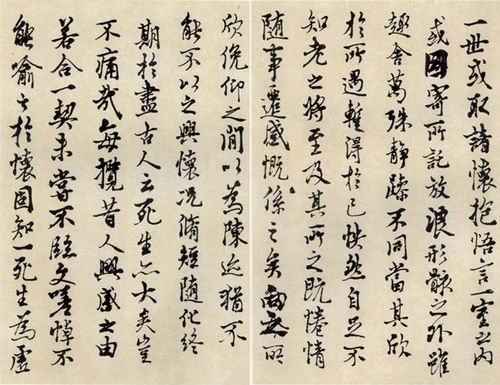 一世或取諸懷抱悟言一室之內
或因寄所託放浪形骸之外雖
趣舍萬殊靜躁不同當其欣
於所遇蹔得於己怏然自足不
知老之將至及其所之既惓情
隨事遷感慨係之矣向之所
欣俛仰之閒以為陳迹猶不
能不以之興懷況脩短隨化終
期於盡古人云死生亦大矣豈
不痛哉每攬昔人興感之由
若合一契未嘗不臨文嗟悼不
能喻之於懷固知一死生為虛